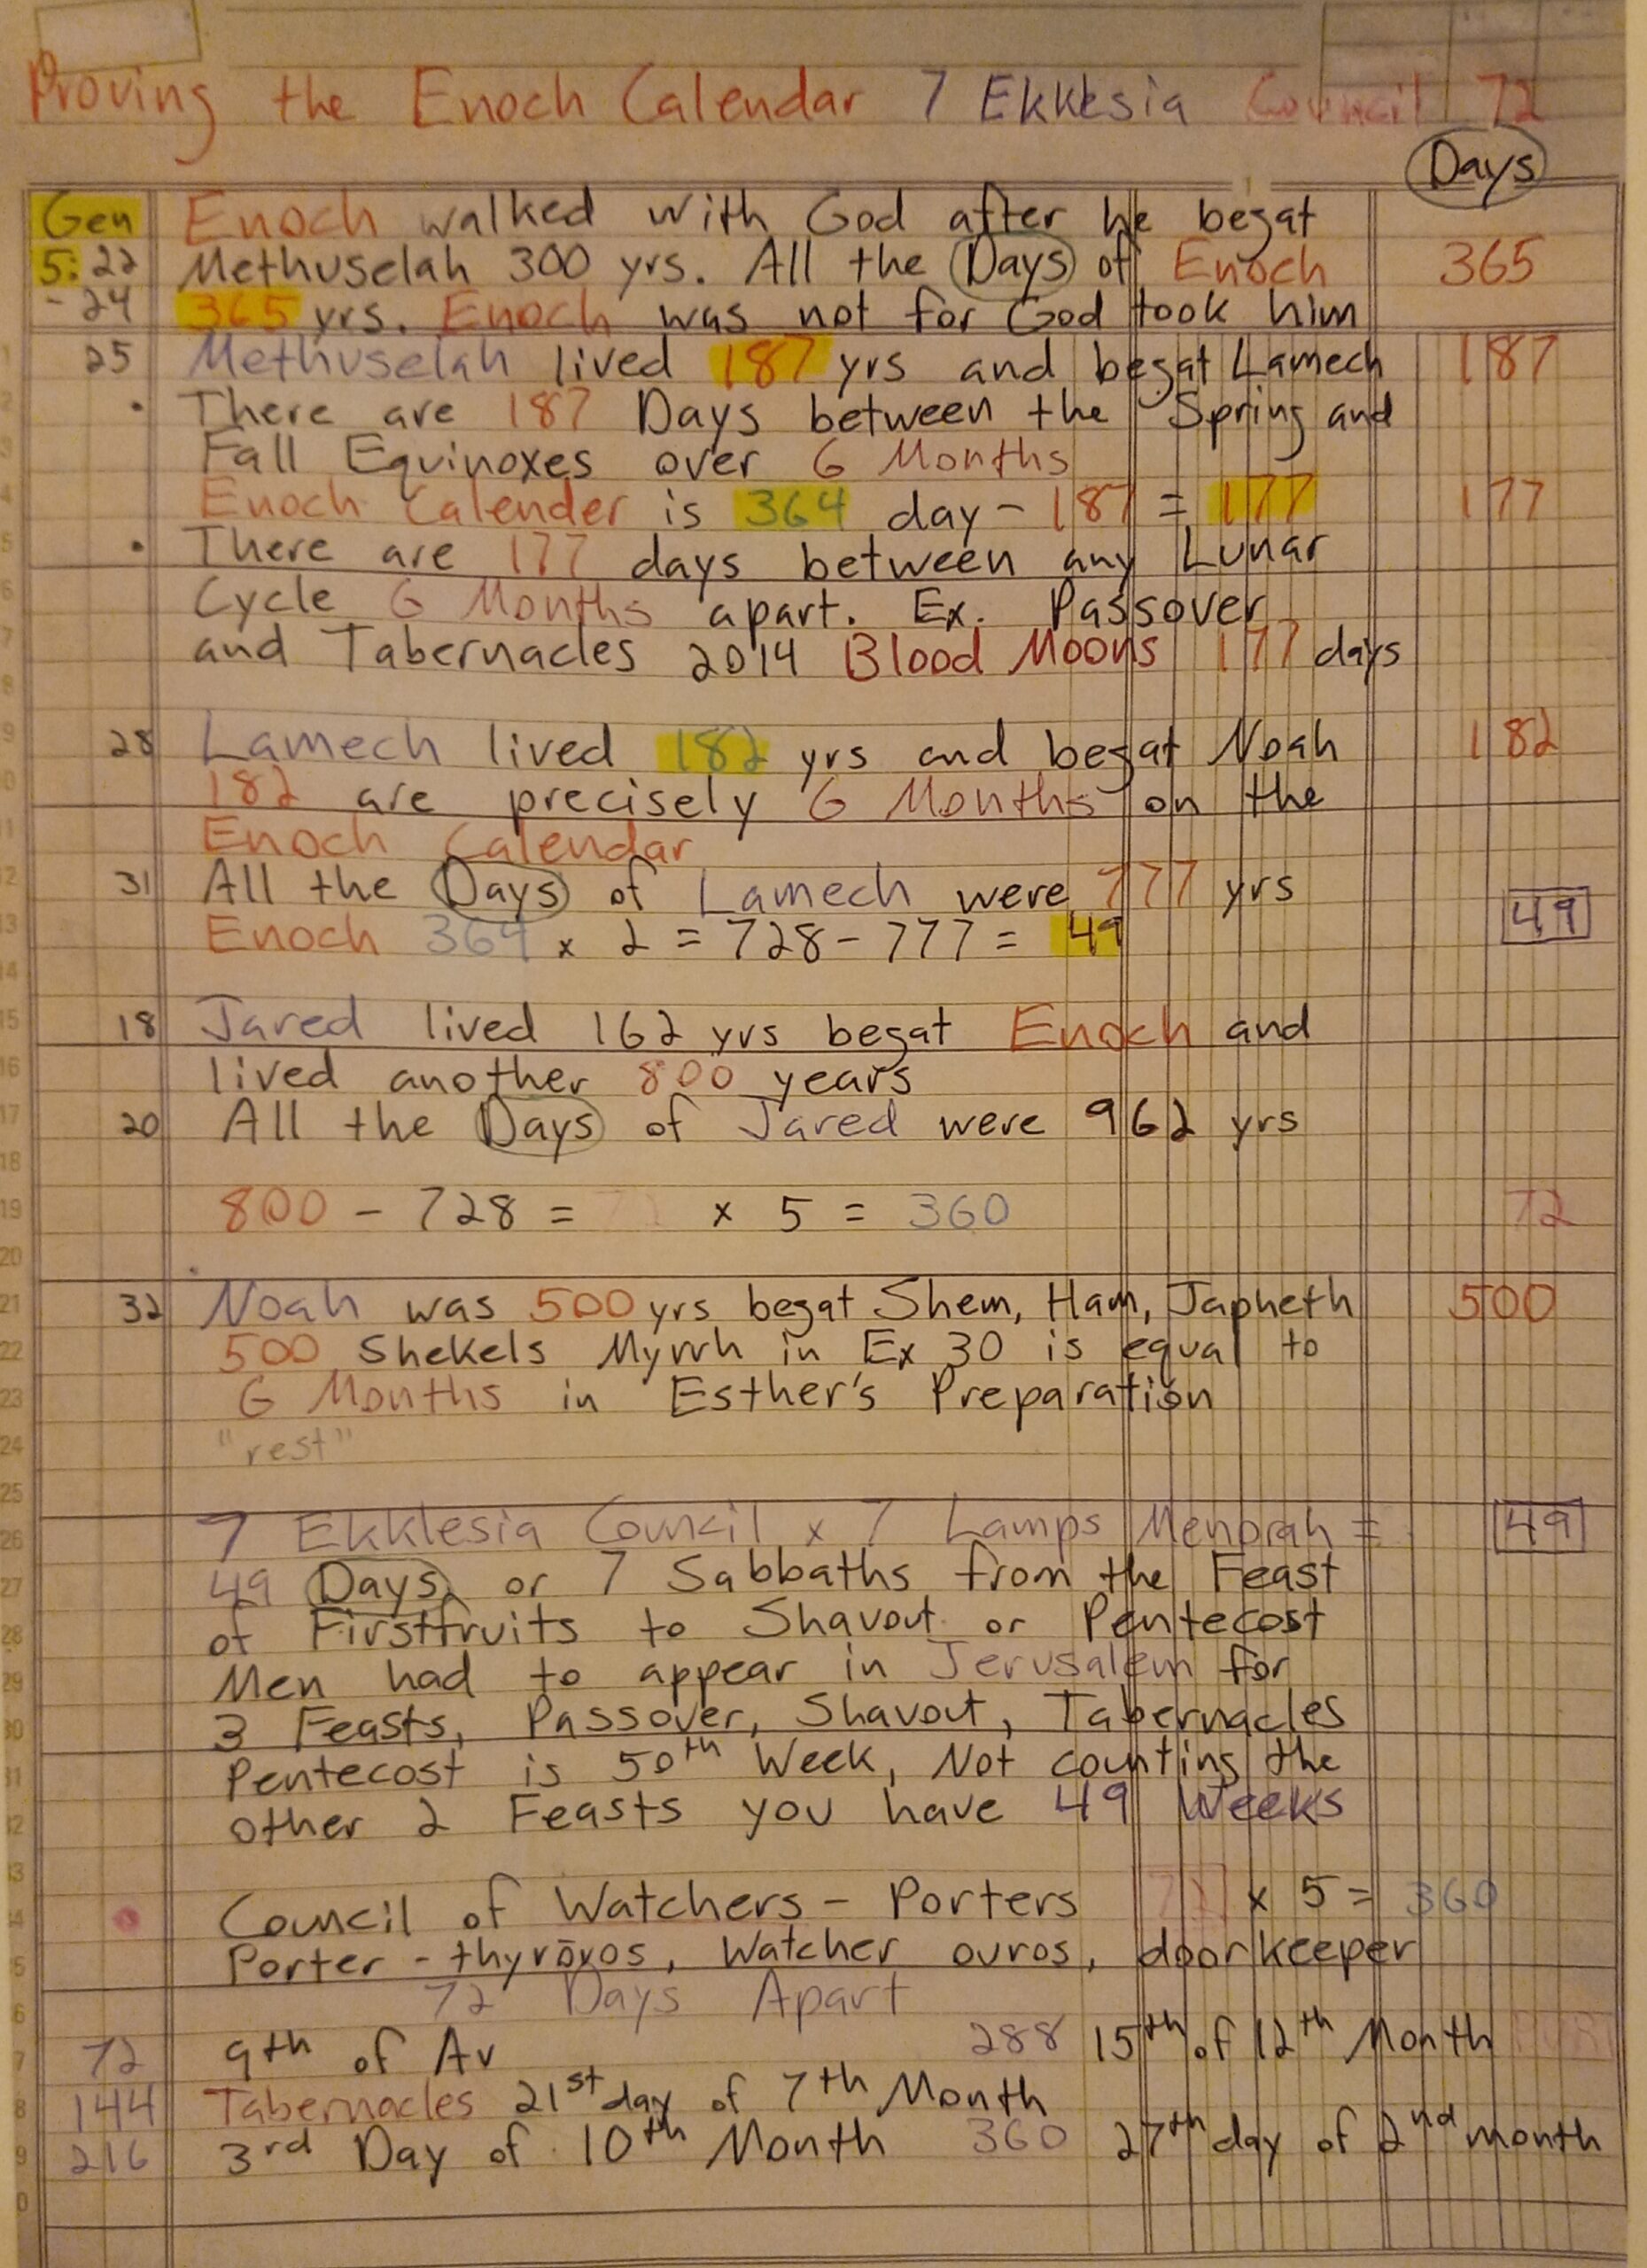 Proving the Enoch Calendar 7 Ekklesia Council 72
Days
Gen Enoch walked with God after he begat
5:22 Methuselah 300 yrs. All the Days of Enoch 365
-24 365 yrs. Enoch was not for God took him
25 Methuselah lived 187 yrs and begat Lamech 187
• There are 187 Days between the Spring and
Fall Equinoxes over 6 Months
Enoch Calender is 364 day - 187 = 177 177
• There are 177 days between any Lunar
Cycle 6 Months apart. Ex. Passover
and Tabernacles 2014 Blood Moons 177 days
28 Lamech lived 182 yrs and begat Noah 182
182 are precisely 6 Months on the
Enoch Calendar
31 All the Days of Lamech were 777 yrs
Enoch 364 x 2 = 728 - 777 = 49 49
18 Jared lived 162 yrs begat Enoch and
lived another 800 years
20 All the Days of Jared were 962 yrs
800 - 728 = 72 x 5 = 360 72
32 Noah was 500 yrs begat Shem, Ham, Japheth 500
500 Shekels Myrrh in Ex 30 is equal to
6 Months in Esther's Preparation
"rest"
7 Ekklesia Council x 7 Lamps Menorah = 49
49 Days, or 7 Sabbaths from the Feast
of Firstfruits to Shavout or Pentecost
Men had to appear in Jerusalem for
3 Feasts, Passover, Shavout, Tabernacles
Pentecost is 50th Week, Not counting the
other 2 Feasts you have 49 Weeks
Council of Watchers - Porters 72 x 5 = 360
Porter - thyrōros, Watcher ouros, doorkeeper
72 Days Apart
72 9th of Av 288 15th of 12th Month
144 Tabernacles 21st day of 7th Month
216 3rd Day of 10th Month 360 27th day of 2nd month